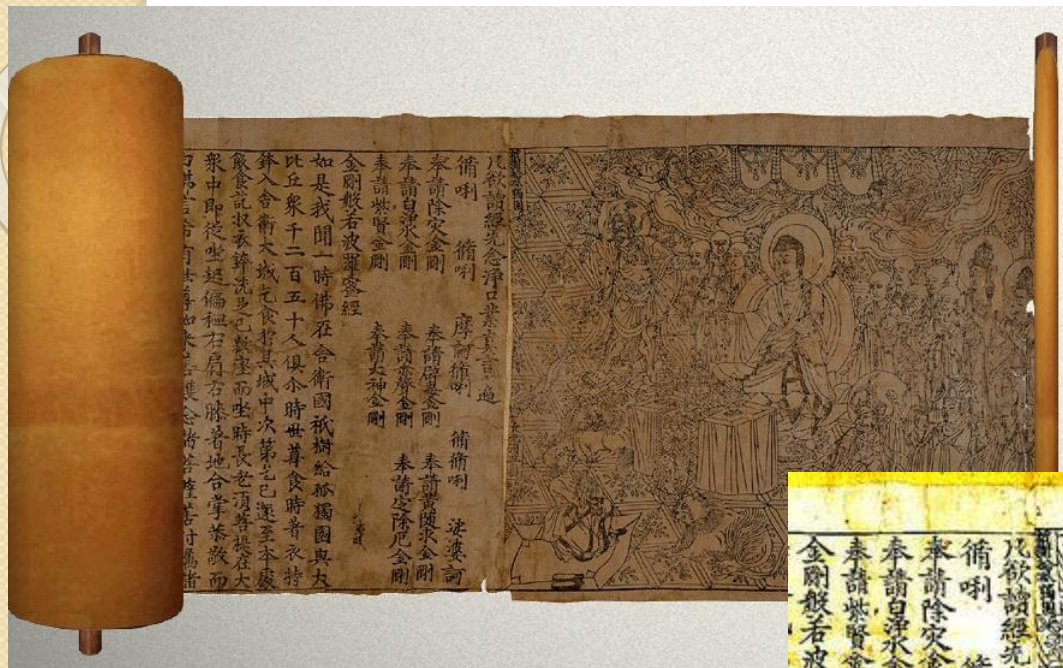 凡欲讀經先念淨口業真言一過
脩唎 脩唎 摩訶脩唎 脩脩唎 娑婆訶
奉請除灾金剛 奉請辟毒金剛 奉請黃隨求金剛
奉請白淨水金剛 奉請赤聲金剛 奉請定除厄金剛
奉請紫賢金剛 奉請大神金剛
金剛般若波羅蜜經
如是我聞一時佛在舍衛國祇樹給孤獨園與大
比丘衆千二百五十人俱尒時世尊食時著衣持
鉢入舍衛大城乞食於其城中次第乞已還至本處
飯食訖収衣鉢洗足已敷座而坐時長老須菩提在大
衆中即從坐起偏袒右肩右膝著地合掌恭敬而
白佛言希有世尊如来善護念諸菩薩善付囑諸
凡欲讀經先
脩唎
奉請除灾金
奉請白淨水金
奉請紫賢金
金剛般若波